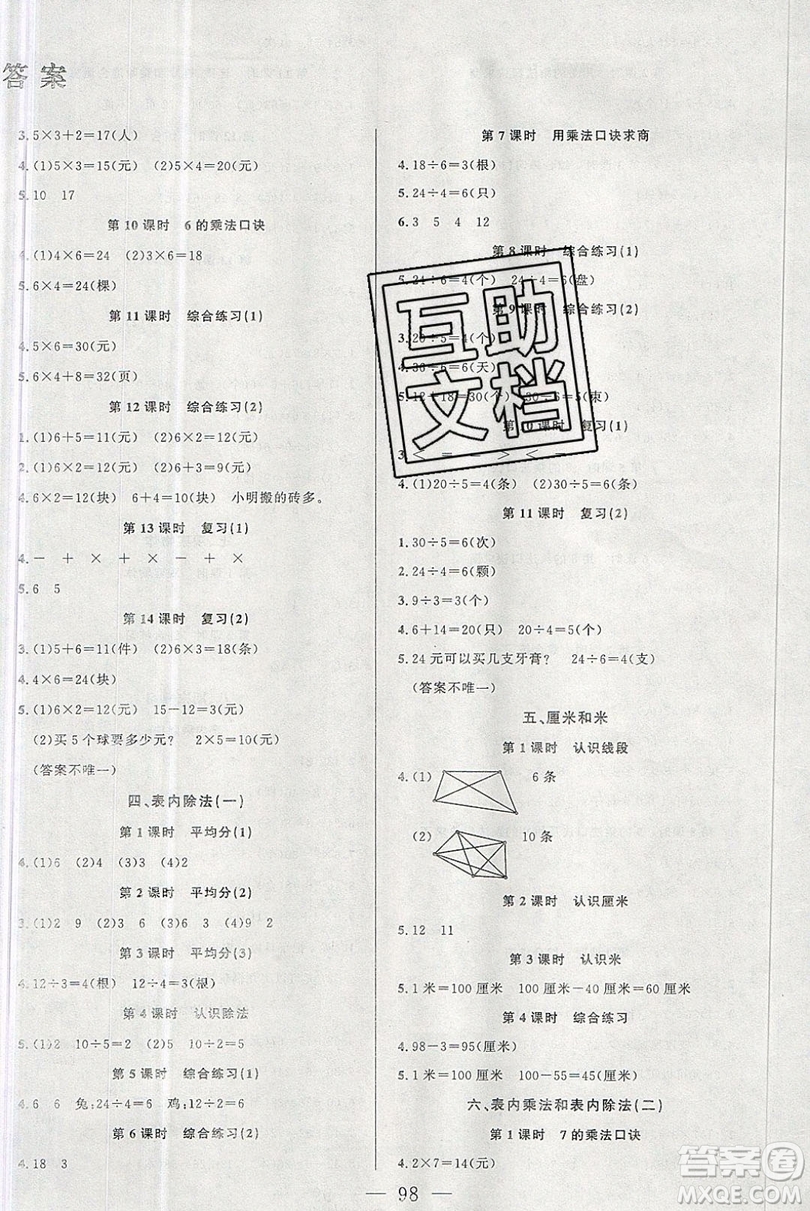 答案
3.5×3+2=17(人)
4.(1)5×3=15(元) (2)5×4=20(元)
5.10 17
第10课时 6的乘法口诀
4.(1)4×6=24 (2)3×6=18
5.6×4=24(棵)
第11课时 综合练习(1)
4.5×6=30(元)
5.6×4+8=32(页)
第12课时 综合练习(2)
1.(1)6+5=11(元) (2)6×2=12(元)
2.(1)6×5=30(元) (2)6×2=12(元)
4.6×2=12(块) 6+4=10(块) 小明搬的砖多。
第13课时 复习(1)
4.- + × + - × +
5.6 5
第14课时 复习(2)
3.(1)5+6=11(件) (2)3×6=18(条)
4.4×6=24(块)
5.(1)6×2=12(元) 15-12=3(元)
(2)买5个球要多少元? 2×5=10(元)
(答案不唯一)
四、表内除法(一)
第1课时 平均分(1)
4.(1)6 (2)4 (3)3 (4)2
第2课时 平均分(2)
3.(1)2 9 (2)3 6 (3)6 3 (4)9 2
第3课时 平均分(3)
4.12÷3=4(根) 12÷4=3(根)
第4课时 认识除法
5.(1)2 10÷5=2 (2)5 10÷2=5
第5课时 综合练习(1)
4.6 6 兔:24÷4=6 鸡:12÷2=6
第6课时 综合练习(2)
4.18 3
第7课时 用乘法口诀求商
4.18÷6=3(根)
5.24÷4=6(只)
6.3 5 4 12
第8课时 综合练习(1)
5.24÷6=4(个) 24÷4=6(盘)
第9课时 综合练习(2)
互助文档
(天)
30÷5=6(束)
复习(1)
4.(1)20÷5=4(条) (2)30÷5=6(条)
第11课时 复习(2)
1.30÷5=6(次)
2.24÷4=6(颗)
3.9÷3=3(个)
4.6+14=20(只) 20÷4=5(个)
5.24元可以买几支牙膏? 24÷6=4(支)
(答案不唯一)
五、厘米和米
第1课时 认识线段
4.(1) 6条
(2) 10条
第2课时 认识厘米
5.12 11
第3课时 认识米
5.1米=100厘米 100厘米-40厘米=60厘米
第4课时 综合练习
4.98-3=95(厘米)
5.1米=100厘米 100-55=45(厘米)
六、表内乘法和表内除法(二)
第1课时 7的乘法口诀
4.2×7=14(元)
— 98 —
答案圈
MXQE.COM